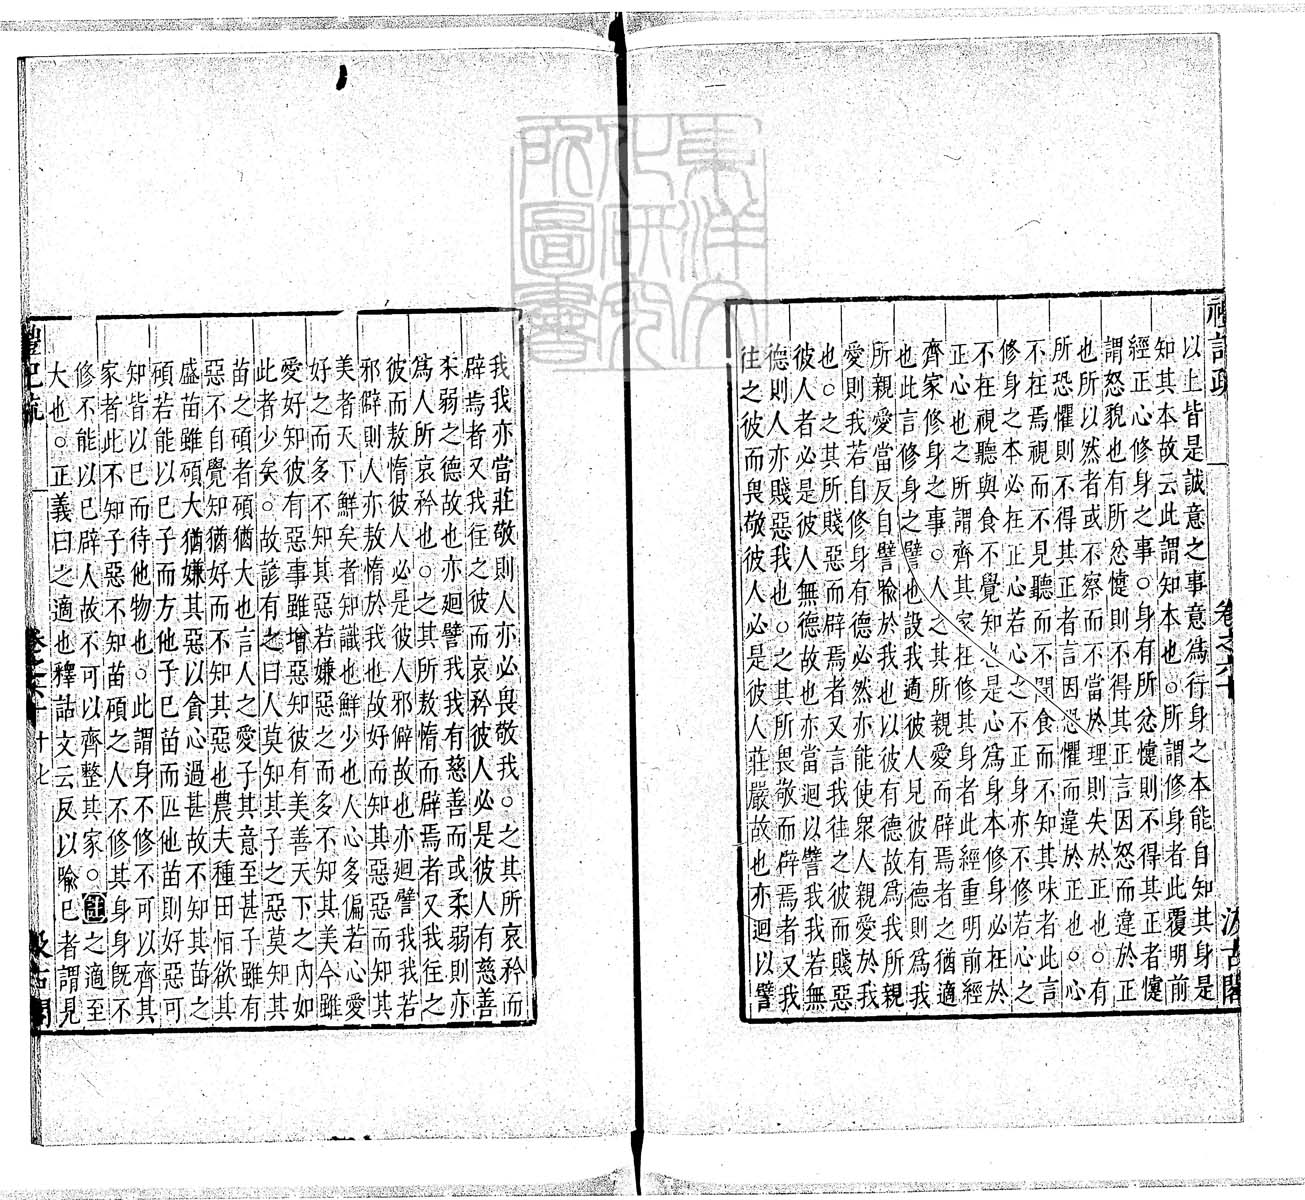 禮記疏
卷之六十
汲古閣
以上皆是誠意之事意爲行身之本能自知其身是
知其本故云此謂知本也○所謂修身者此覆明前
經正心修身之事○身有所忿懥則不得其正者懥
謂怒貌也有所忿懥則不得其正言因怒而違於正
也所以然者或不察而不當於理則失於正也○有
所恐懼則不得其正者言因恐懼而違於正也○心
不在焉視而不見聽而不聞食而不知其味者此言
修身之本必在正心若心之不正身亦不修若心之
不在視聽與食不覺知也是心爲身本修身必在於
正心也之所謂齊其家在修其身者此經重明前經
齊家修身之事○人之其所親愛而辟焉者之猶適
也此言修身之譬也設我適彼人見彼有德則爲我
所親愛當反自譬喻於我也以彼有德故爲我所親
愛則我若自修身有德必然亦能使衆人親愛於我
也○之其所賤惡而辟焉者又言我往之彼而賤惡
彼人者必是彼人無德故也亦當迴以譬我我若無
德則人亦賤惡我也○之其所畏敬而辟焉者又我
往之彼而畏敬彼人必是彼人莊嚴故也亦迴以譬
我我亦當莊敬則人亦必畏敬我○之其所哀矜而
辟焉者又我往之彼而哀矜彼人必是彼人有慈善
柔弱之德故也亦迴譬我我有慈善而或柔弱則亦
爲人所哀矜也○之其所敖惰而辟焉者又我往之
彼而敖惰彼人必是彼人邪僻故也亦迴譬我我若
邪僻則人亦敖惰於我也故好而知其惡惡而知其
美者天下鮮矣者知識也鮮少也人心多偏若心愛
好之而多不知其惡若嫌惡之而多不知其美今雖
愛好知彼有惡事雖增惡知彼有美善天下之內如
此者少矣○故諺有之曰人莫知其子之惡莫知其
苗之碩者碩猶大也言人之愛子其意至甚子雖有
惡不自覺知猶好而不知其惡也農夫種田恒欲其
盛苗雖碩大猶嫌其惡以貪心過甚故不知其苗之
碩若能以己子而方他子己苗而匹他苗則好惡可
知皆以己而待他物也○此謂身不修不可以齊其
家者此不知子惡不知苗碩之人不修其身身既不
修不能以己辟人故不可以齊整其家○註之適至
大也○正義曰之適也釋詁文云反以喻己者謂見
禮記疏
卷之六十
十七
汲古閣
東洋文化研究所圖書